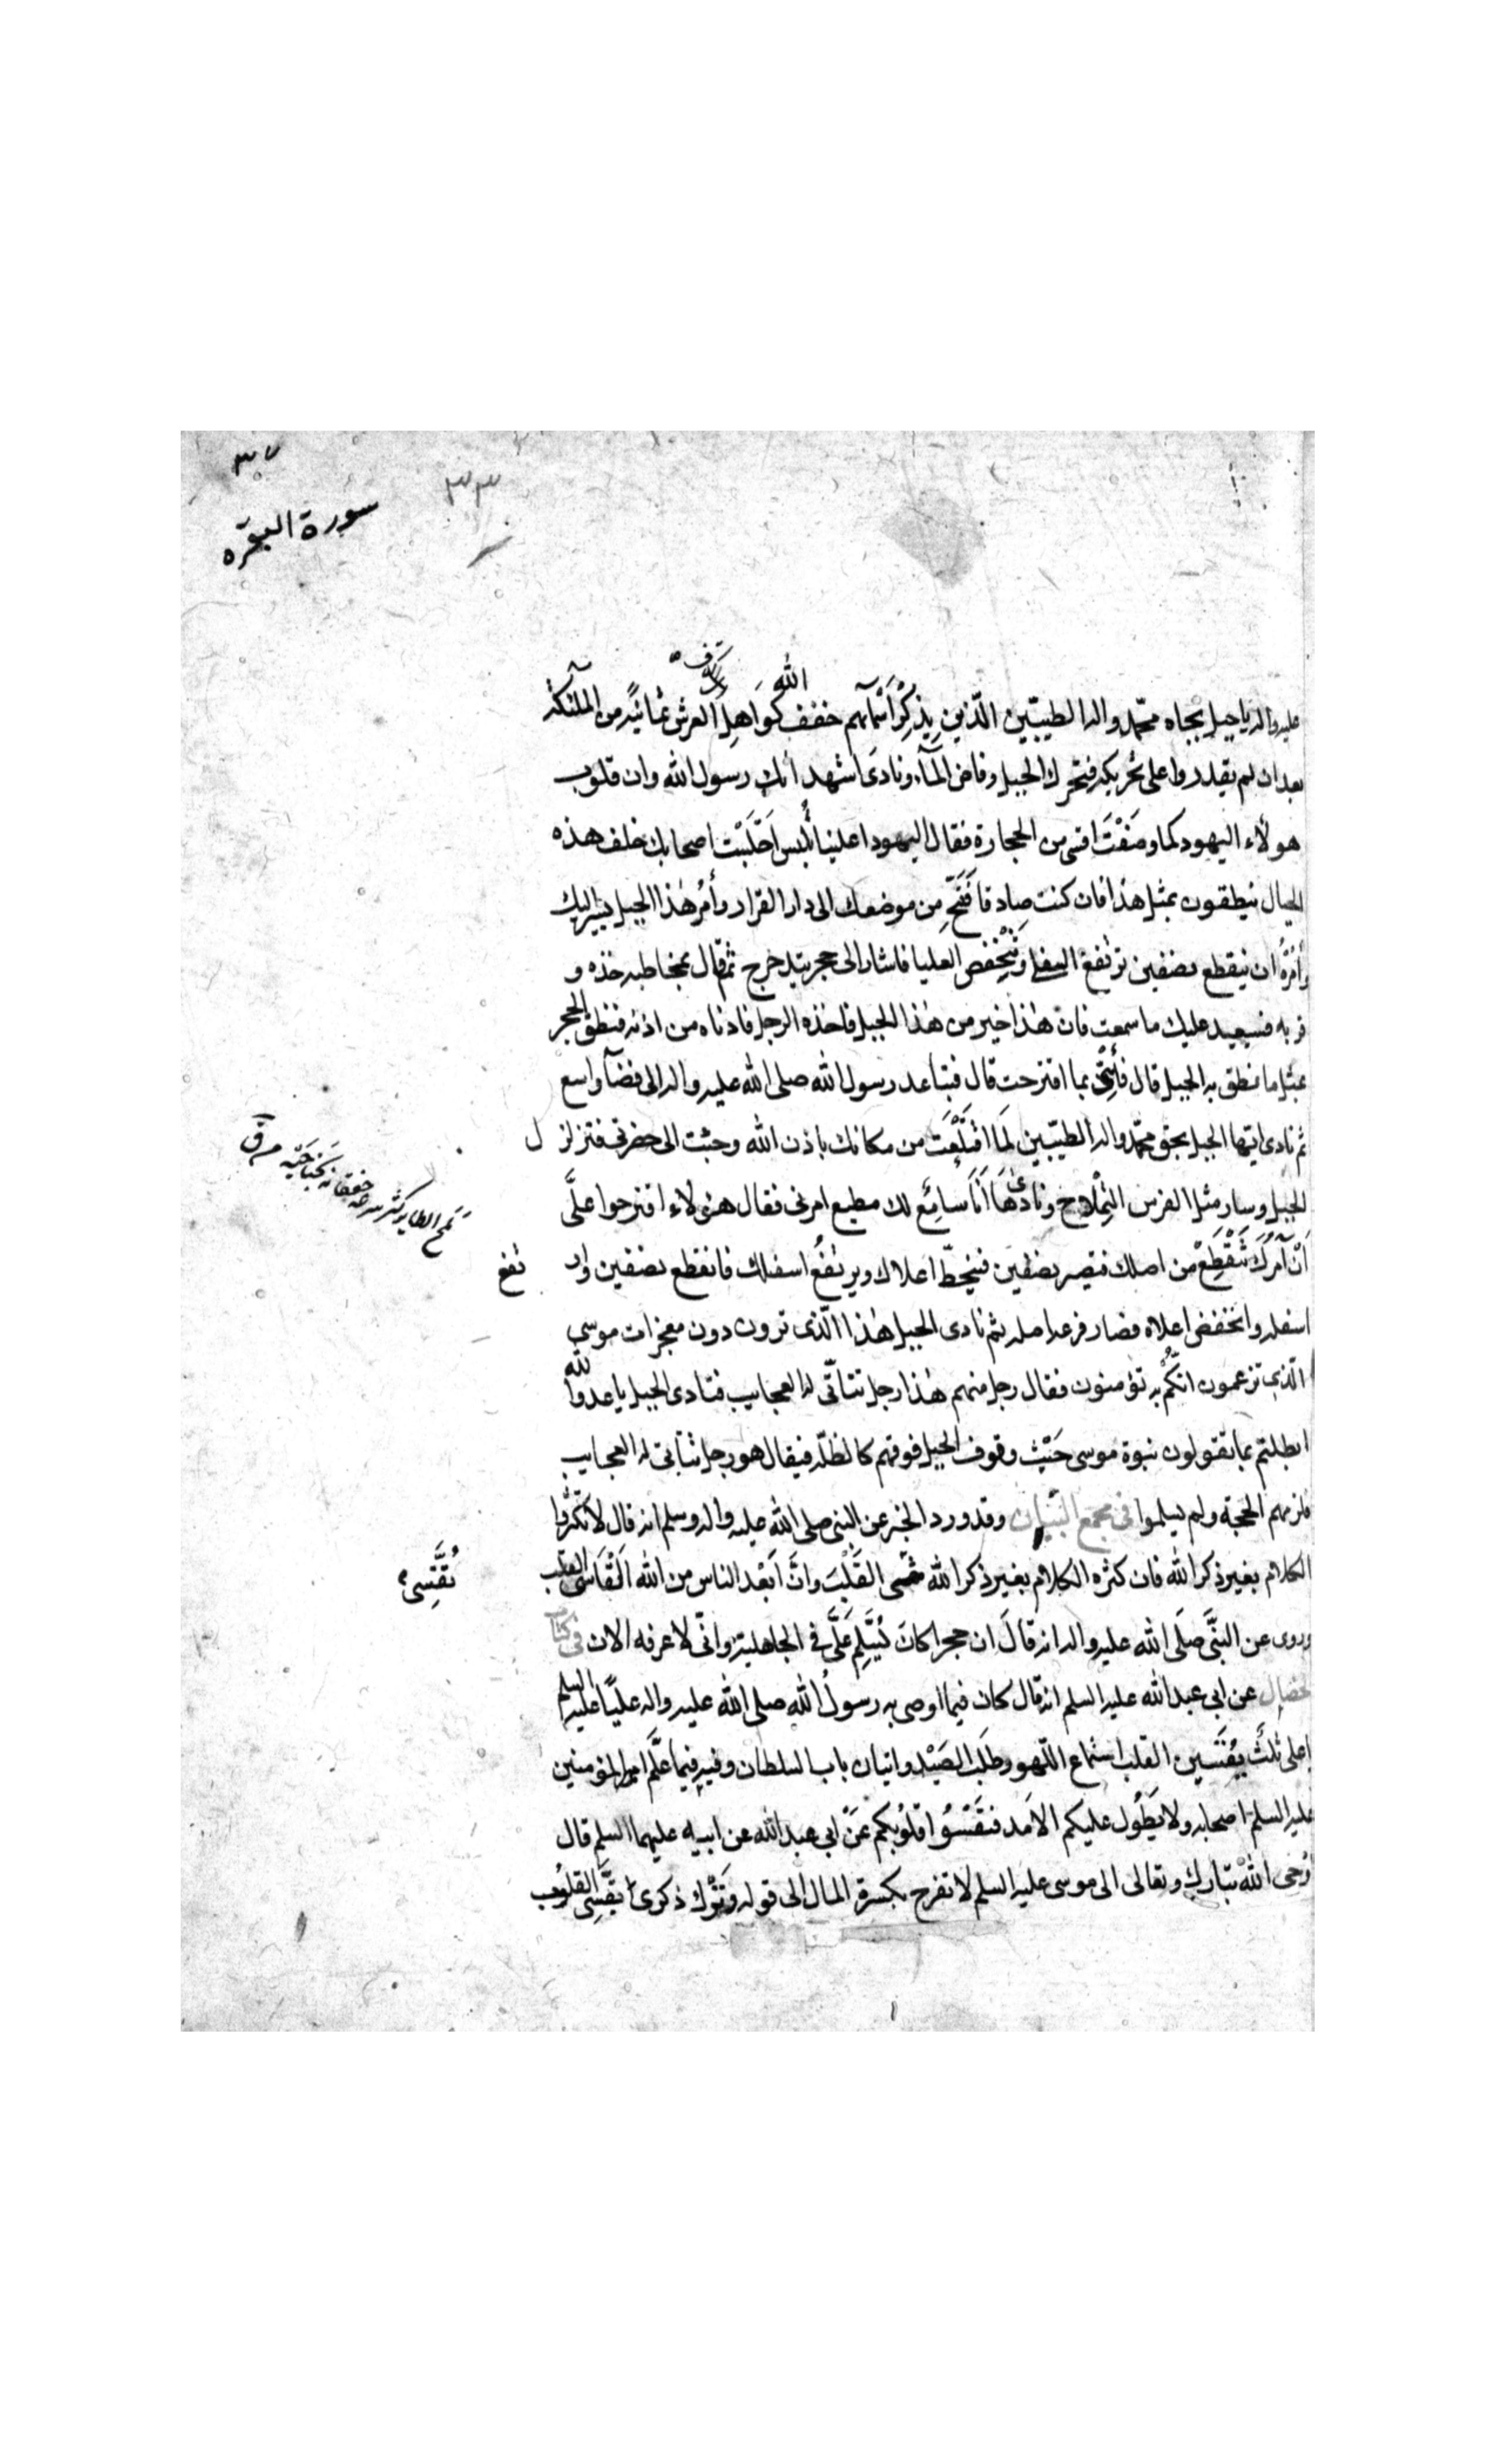 ٣٧
٣٣
سورة البقره
عليه واله يا جبل بجاه محمّد واله الطيبين الّذين بذِكْرِ أَسْمَآئهم خفف الله كَوَاهِل العرش ثمانيةً من الملئكة
بعد ان لم يقدروا على تحريكه فتحرك الجبل وفاض المآء ونادى اشهد أنك رسول الله وان قلوب
هولآء اليهود كما وصَفْتَ اقسى من الحجارة فقال اليهود اعلينا تُلبس اَجْلَسْت اصحابك خلف هذه
الجبال ينطقون بمثل هذا فان كنت صادقا فَتَنَحّ من موضعك الى دار القرار وأْمُر هٰذا الجبل يسير اليك
وأْمُرْهُ ان ينقطع نصفين ترتفع السفلى وتَنْخَفِض العليا فاشار الى حجر تدحرج ثم قال لمخاطبه خذه و
قربه فسيعيد عليك ما سمعت فان هٰذا خير من هٰذا الجبل فاخذه الرجل فادناه من اذنه فنطق الحجر
بمثل ما نطق به الجبل قال فَأْتِنى بما اقترحت قال فتباعد رسول الله صلى الله عليه واله الى فضآء واسع
ثم نادى ايّها الجبل بحق محمّد واله الطيّبين لَمَا اقْتَلَعْت من مكانك باذن الله وجئت الى حضرتى فتزلزل
الجبل وسار مثل الفرس الهِمْلاج ونادى هَا اَنَا سَامِع لك مطيع امرنى فقال هٰؤلاء اقترحوا علَىَّ
اَنْ آمُرَكَ تَنْقَطِعَ من اصلك فتصير نصفين فينحطّ اعلاك ويرتفعُ اسفلك فانقطع نصفين وارتفع
اسفله وانخفض اعلاه فصار فرعه اصله ثم نادى الجبل هٰذا الّذى ترون دون معجزات موسى
الّذى تزعمون انّكم به تؤمنون فقال رجل منهم هٰذا رجل تتأتّى له العجايب فنادى الجبل يا عدوا لله
ابطلتم بما تقولون نبوة موسى حَيْث وقوف الجبل فوقهم كالظلّه فيقال هو رجل تتأتى له العجايب
فلزمهم الحجة ولم يسلموا فى مجمع البيان وقد ورد الخبر عن النبى صلى الله عليه واله وسلم انه قال لا تكثروا
الكلام بغير ذكر الله فان كثرة الكلام بغير ذكر الله تقسى القَلْبَ وانّ اَبْعَد الناس من الله اَلْقَاسى القلب
تُقَسِّى
وروى عن النبَّى صلَى الله عليه واله انه قالَ ان حجرا كانَ يُسَلِّم علَىَّ فى الجاهلية وانّى لاعرفه الان فى كتاب
الخصال عن ابى عبد الله عليه السلم انه قال كان فيما اوصى به رسولُ الله صلى الله عليه واله عليًا عليه السلم
يا على ثلث يُقَسّين القلب استماع اللّهو وطَلَب الصَيْد واتيان باب السلطان وفيه فيما علَّم امير المؤمنين
عليه السلم اصحابه ولا يَطُول عليكم الامَد فتَقْسُوا قلُوبُكم عَنْ ابى عبد الله عن ابيه عليهما السلم قال
اَوْحى اللهُ تبارك وتعالى الى موسى عليه السلم لا تفرح بكثرة المال الى قوله وتَرْك ذكرى يُقَسِّى القلوب